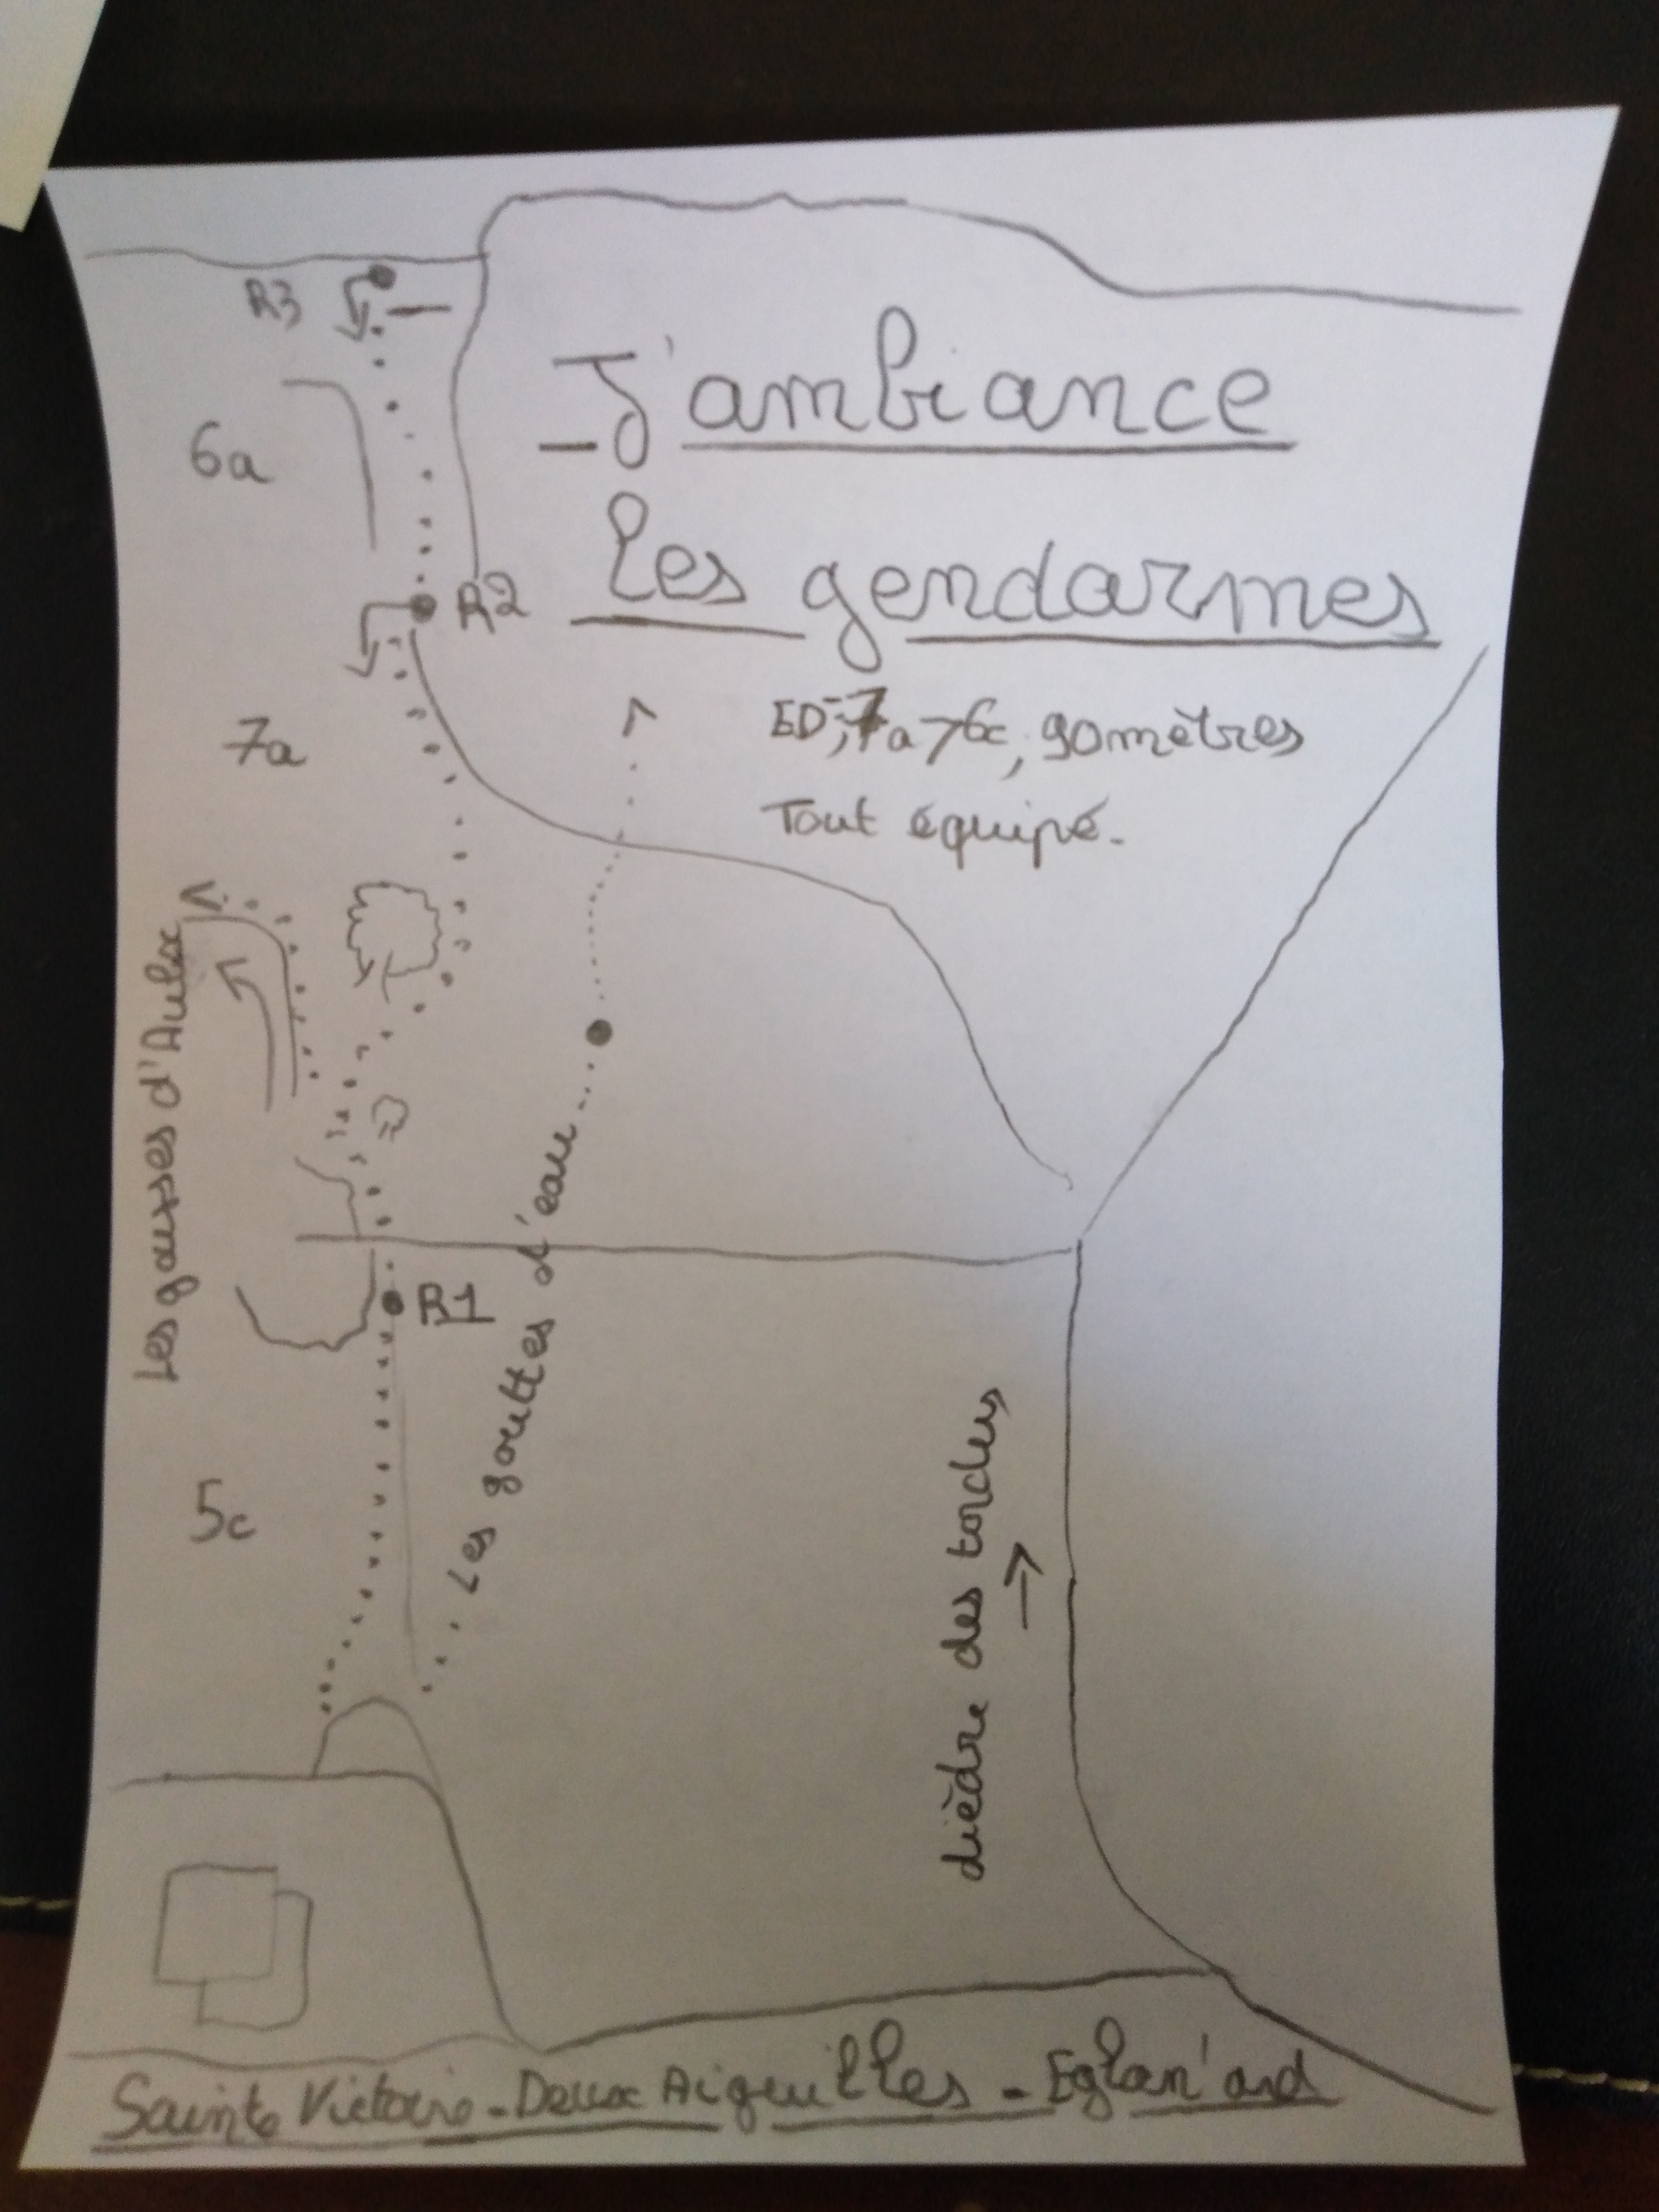 R3
J'ambiance
6a
Les gendarmes
R2
ED-; 7a>6c, 90 mètres
Tout équipé.
7a
Les gousses d'Aulx
Les gouttes d'eau
R1
5c
dièdre des tordus
Sainte Victoire - Deux Aiguilles - Eglan'ard